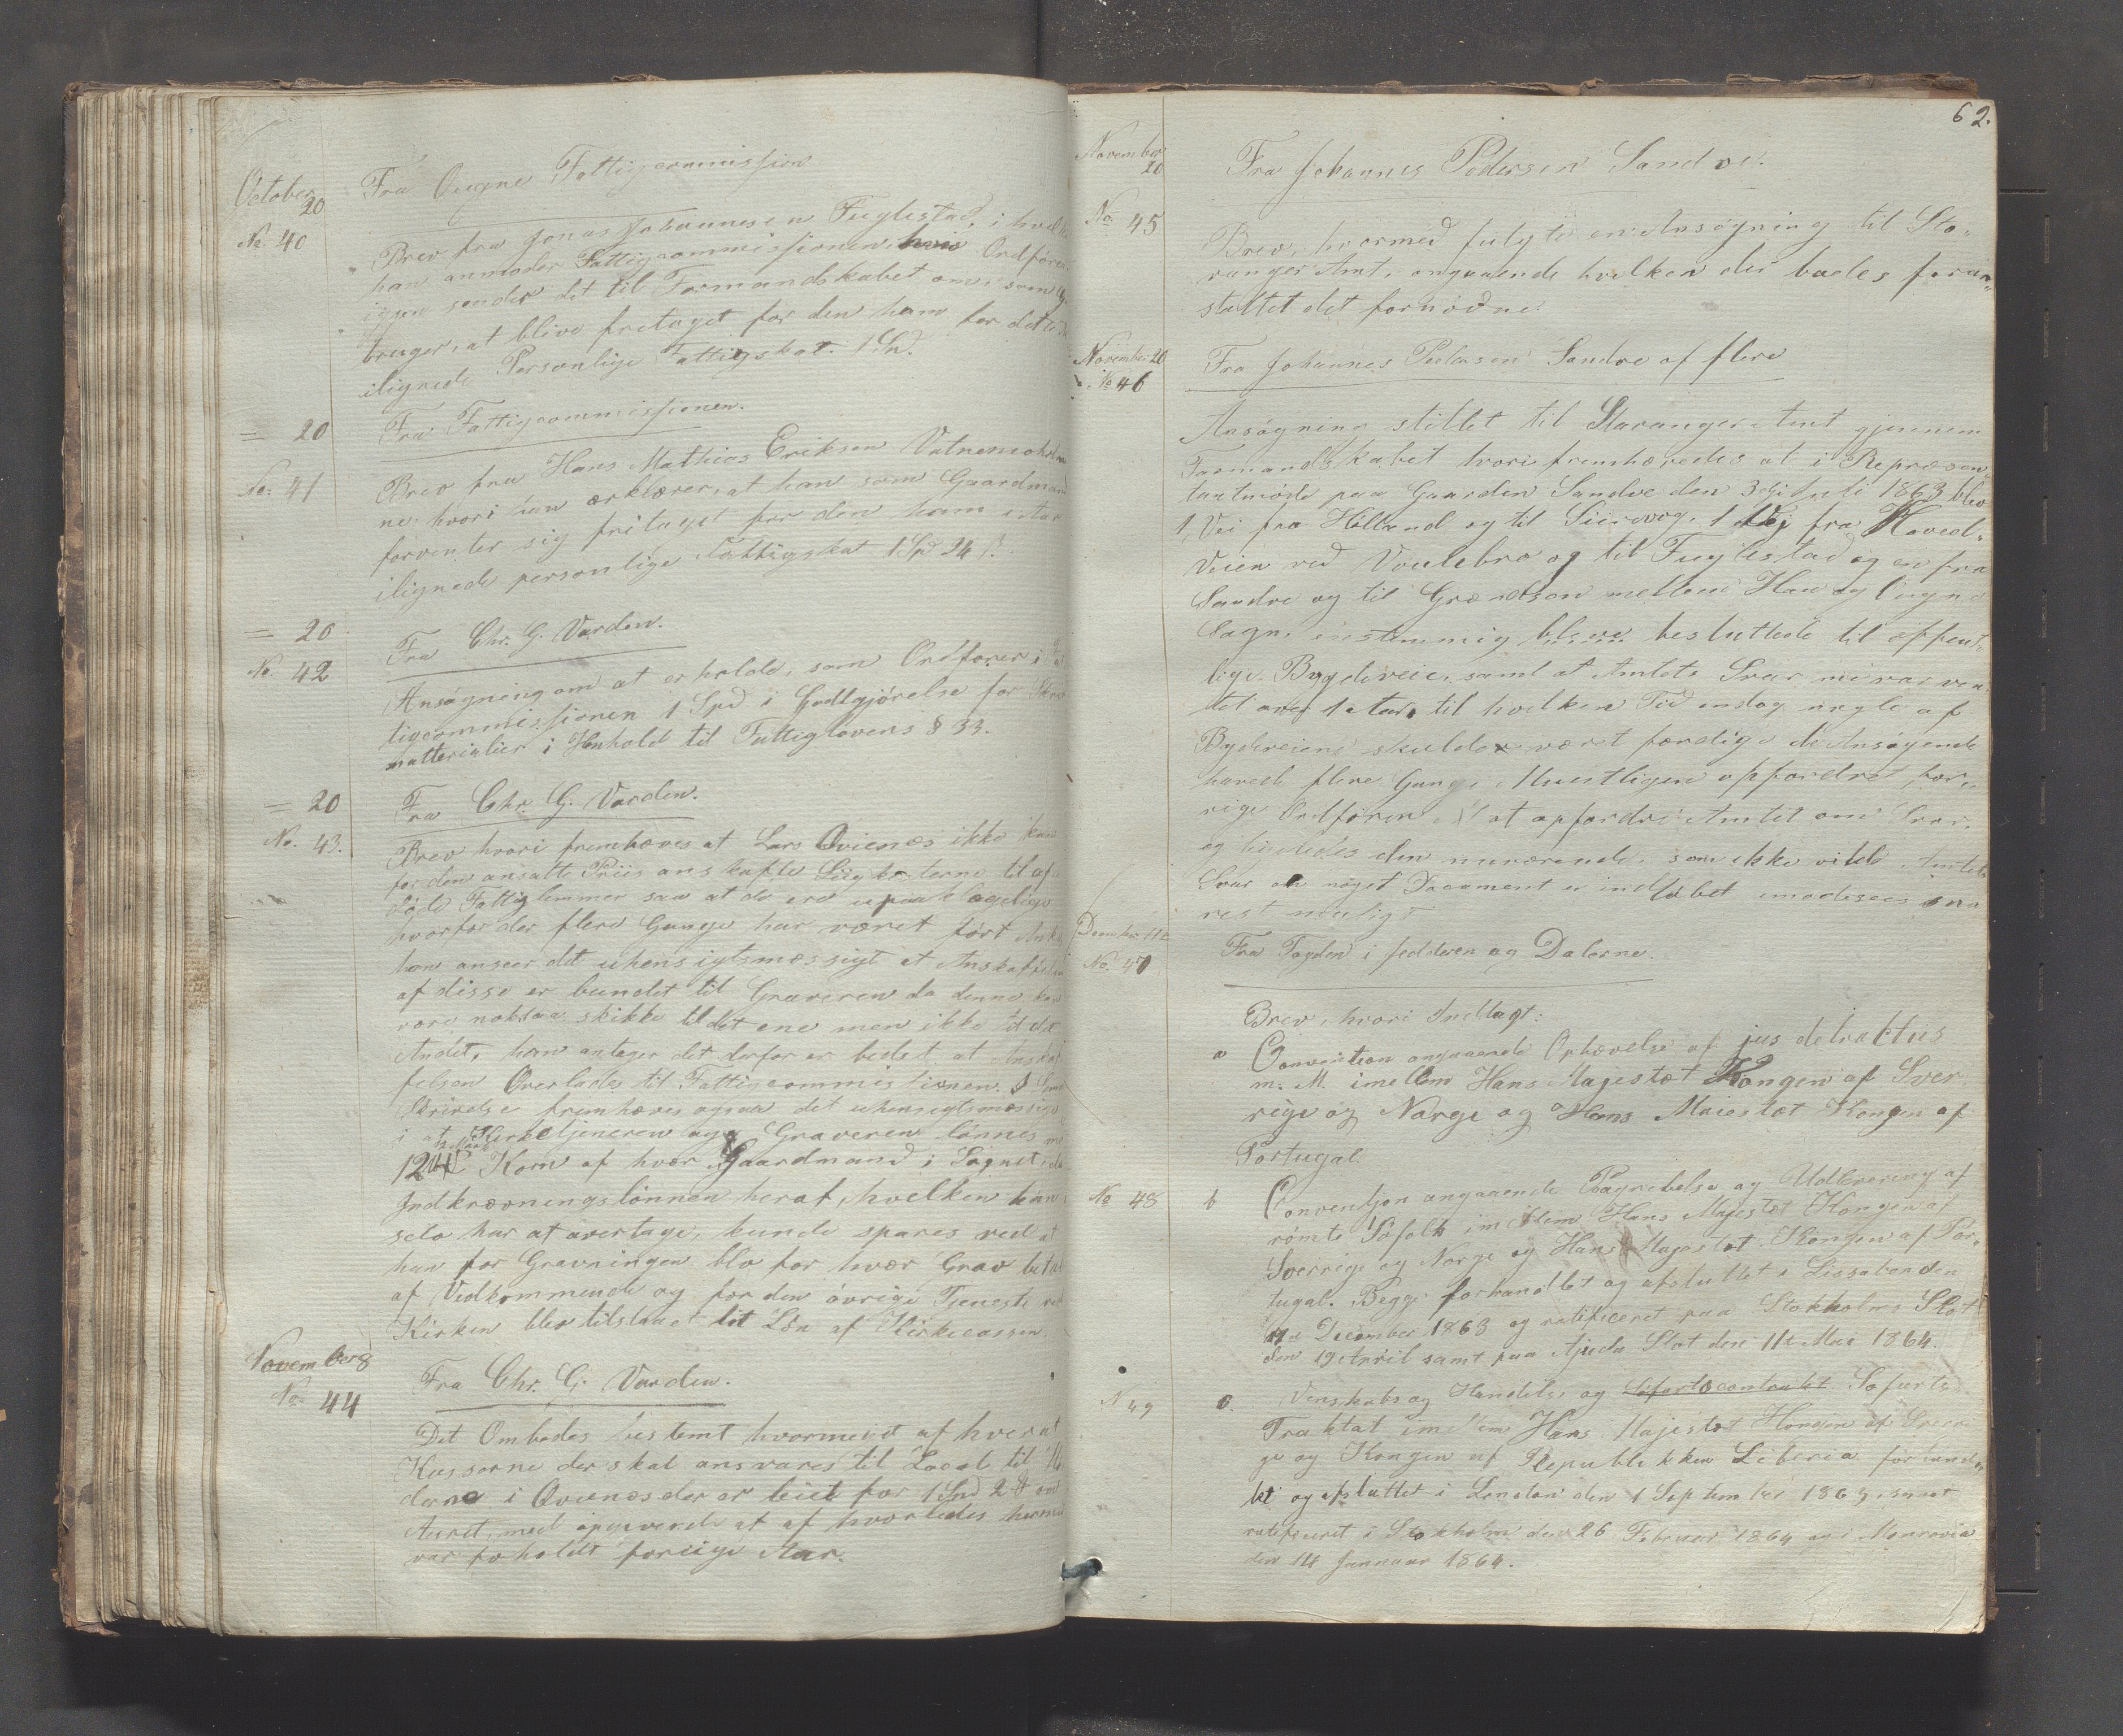 October 20
Fra Ougne Fattigcommission
No. 40
Brev fra Jonas Johannesen Fuglestad, i hvilke
han anmoder Fattigcommissionen, hvis Ordförer
igjen sender det til Formandskabet om, som
bruger, at blive fritaget for den ham for dette
ilignede Personlige Fattigskat. 1 Spd.
= 20
Fra Fattigcommissionen.
No. 41
Brev fra Hans Mathias Eriksen Vatnemohol
ne, hvori han ærklærer, at han som Gaardmand
forventer sig fritaget for den ham i Aar
ilignede personlige Fattigskat 1 Spd 24 ß.
= 20
Fra Chr. G. Varden.
No. 42
Ansøgning om at erholde, som Ordfører i Fat
tigcommissionen 1 Spd i Godtgjörelse for Skriv
matterialier i Henhold til Fattiglovens § 33.
= 20
Fra Chr. G. Varden.
No. 43.
Brev hvori fremhæves at Lars Qvienæs ikke kan
for den ansatte Priis anskaffe Liigkisterne til af
döde Fattiglemmer saa at de ere upaaklagelige
hvorfor der flere Gange har været fört Anke
han anseer det uhensigtsmæssigt at Anskaffelsen
af disse er bundet til Graveren da denne kan
være noksaa skikket til det ene men ikke til det
Andet, han antager det derfor er bedst at Anskaf
felsen Overlades til Fattigcommissionen. I Samme
Skrivelse fremhæves ogsaa det uhensigtsmæssige
i at Kirketjeneren og Graveren lönnes med
12 Korn af hver Gaardmand i Sognet, da
Indkrævningslönnen heraf, hvilken han
selv har at overtage, kunde spares ved at
han for Gravningen blev for hver Grav betalt
af Vedkommende og for den övrige Tjeneste ved
Kirken blev tilstaaet let Lön af Kirkecassen.
November 8
Fra Chr. G. Varden.
No. 44
Det Ombedes bestemt hvormeget af hver af
Kasserne der skal ansvares til Locale til
derne i Qvienæs der er leiet for 1 Spd 2 ort om
Aaret, med opgivende af af hvorledes hermed
var foholdt forrige Aar.
62.
November 20
Fra Johannes Pedersen Sandve.
No. 45
Brev, hvormed fulgte en Ansøgning til Sta-
vanger Amt, angaaende hvilken der bades foran-
staltet det fornödne.
November 20
Fra Johannes Pedersen Sandve af flere
No 46
Ansøgning stillet til Stavanger Amt gjennem
Formandskabet hvori fremhævedes at i Repræsen-
tantmöde paa Gaarden Sandve den 3die Juli 1863 blev
1 Vei fra Helland og til Sirevog. 1 Vej fra Hoved-
Veien ved Voulebro og til Fuglestad og en fra
Sandve og til Grændsen mellem Haa og Ougne
Sogn, enstemmig bleve besluttede til offent-
lige Bygdeveie, samt at Amtets Svar nu var ven
tet over 1 Aar, til hvilken Tid endog nogle af
Bydeveiene skulde været færdige de Ansøgende
havde flere Gange Mundtligen opfordret for-
rige Ordförer at opfordre Amtet om Svar,
og ligeledes den nuværende, som ikke vilde Amtets
Svar om noget Document er indløbet imødesees sna
rest muligt
December 11te
Fra Fogden i Jedderen og Dalerne.
No. 47
Brev, hvori Indlagt:
a Convention angaaende Ophævelse af jus detraktus
m. M. imellem Hans Majestæt Kongen af Sver
rige og Norge og Hans Maiestæt Kongen af
Portugal.
No 48
b Convention angaaende Paagribelse og Udlevering af
römte Söfolk imellem Hans Majestæt Kongen af
Sverrige og Norge og Hans Majestæt Kongen af Por-
tugal. Begge forhandlet og afsluttet i Lissabon den
17de December 1863 og ratificeret paa Stokholms Slot
den 19 April samt paa Ajuda Slot den 11te Mai 1864.
N 49
c. Venskabs og Handels og Söfartscontrakt Söfarts
Traktat imellem Hans Majestæt Kongen af Sverri
ge og Kongen af Republikken Liberia forhand-
let og afsluttet i London den 1 September 1863, samt
ratificeret i Stokholm den 26 Februar 1864 og i Monrovia
den 14 Januar 1864.